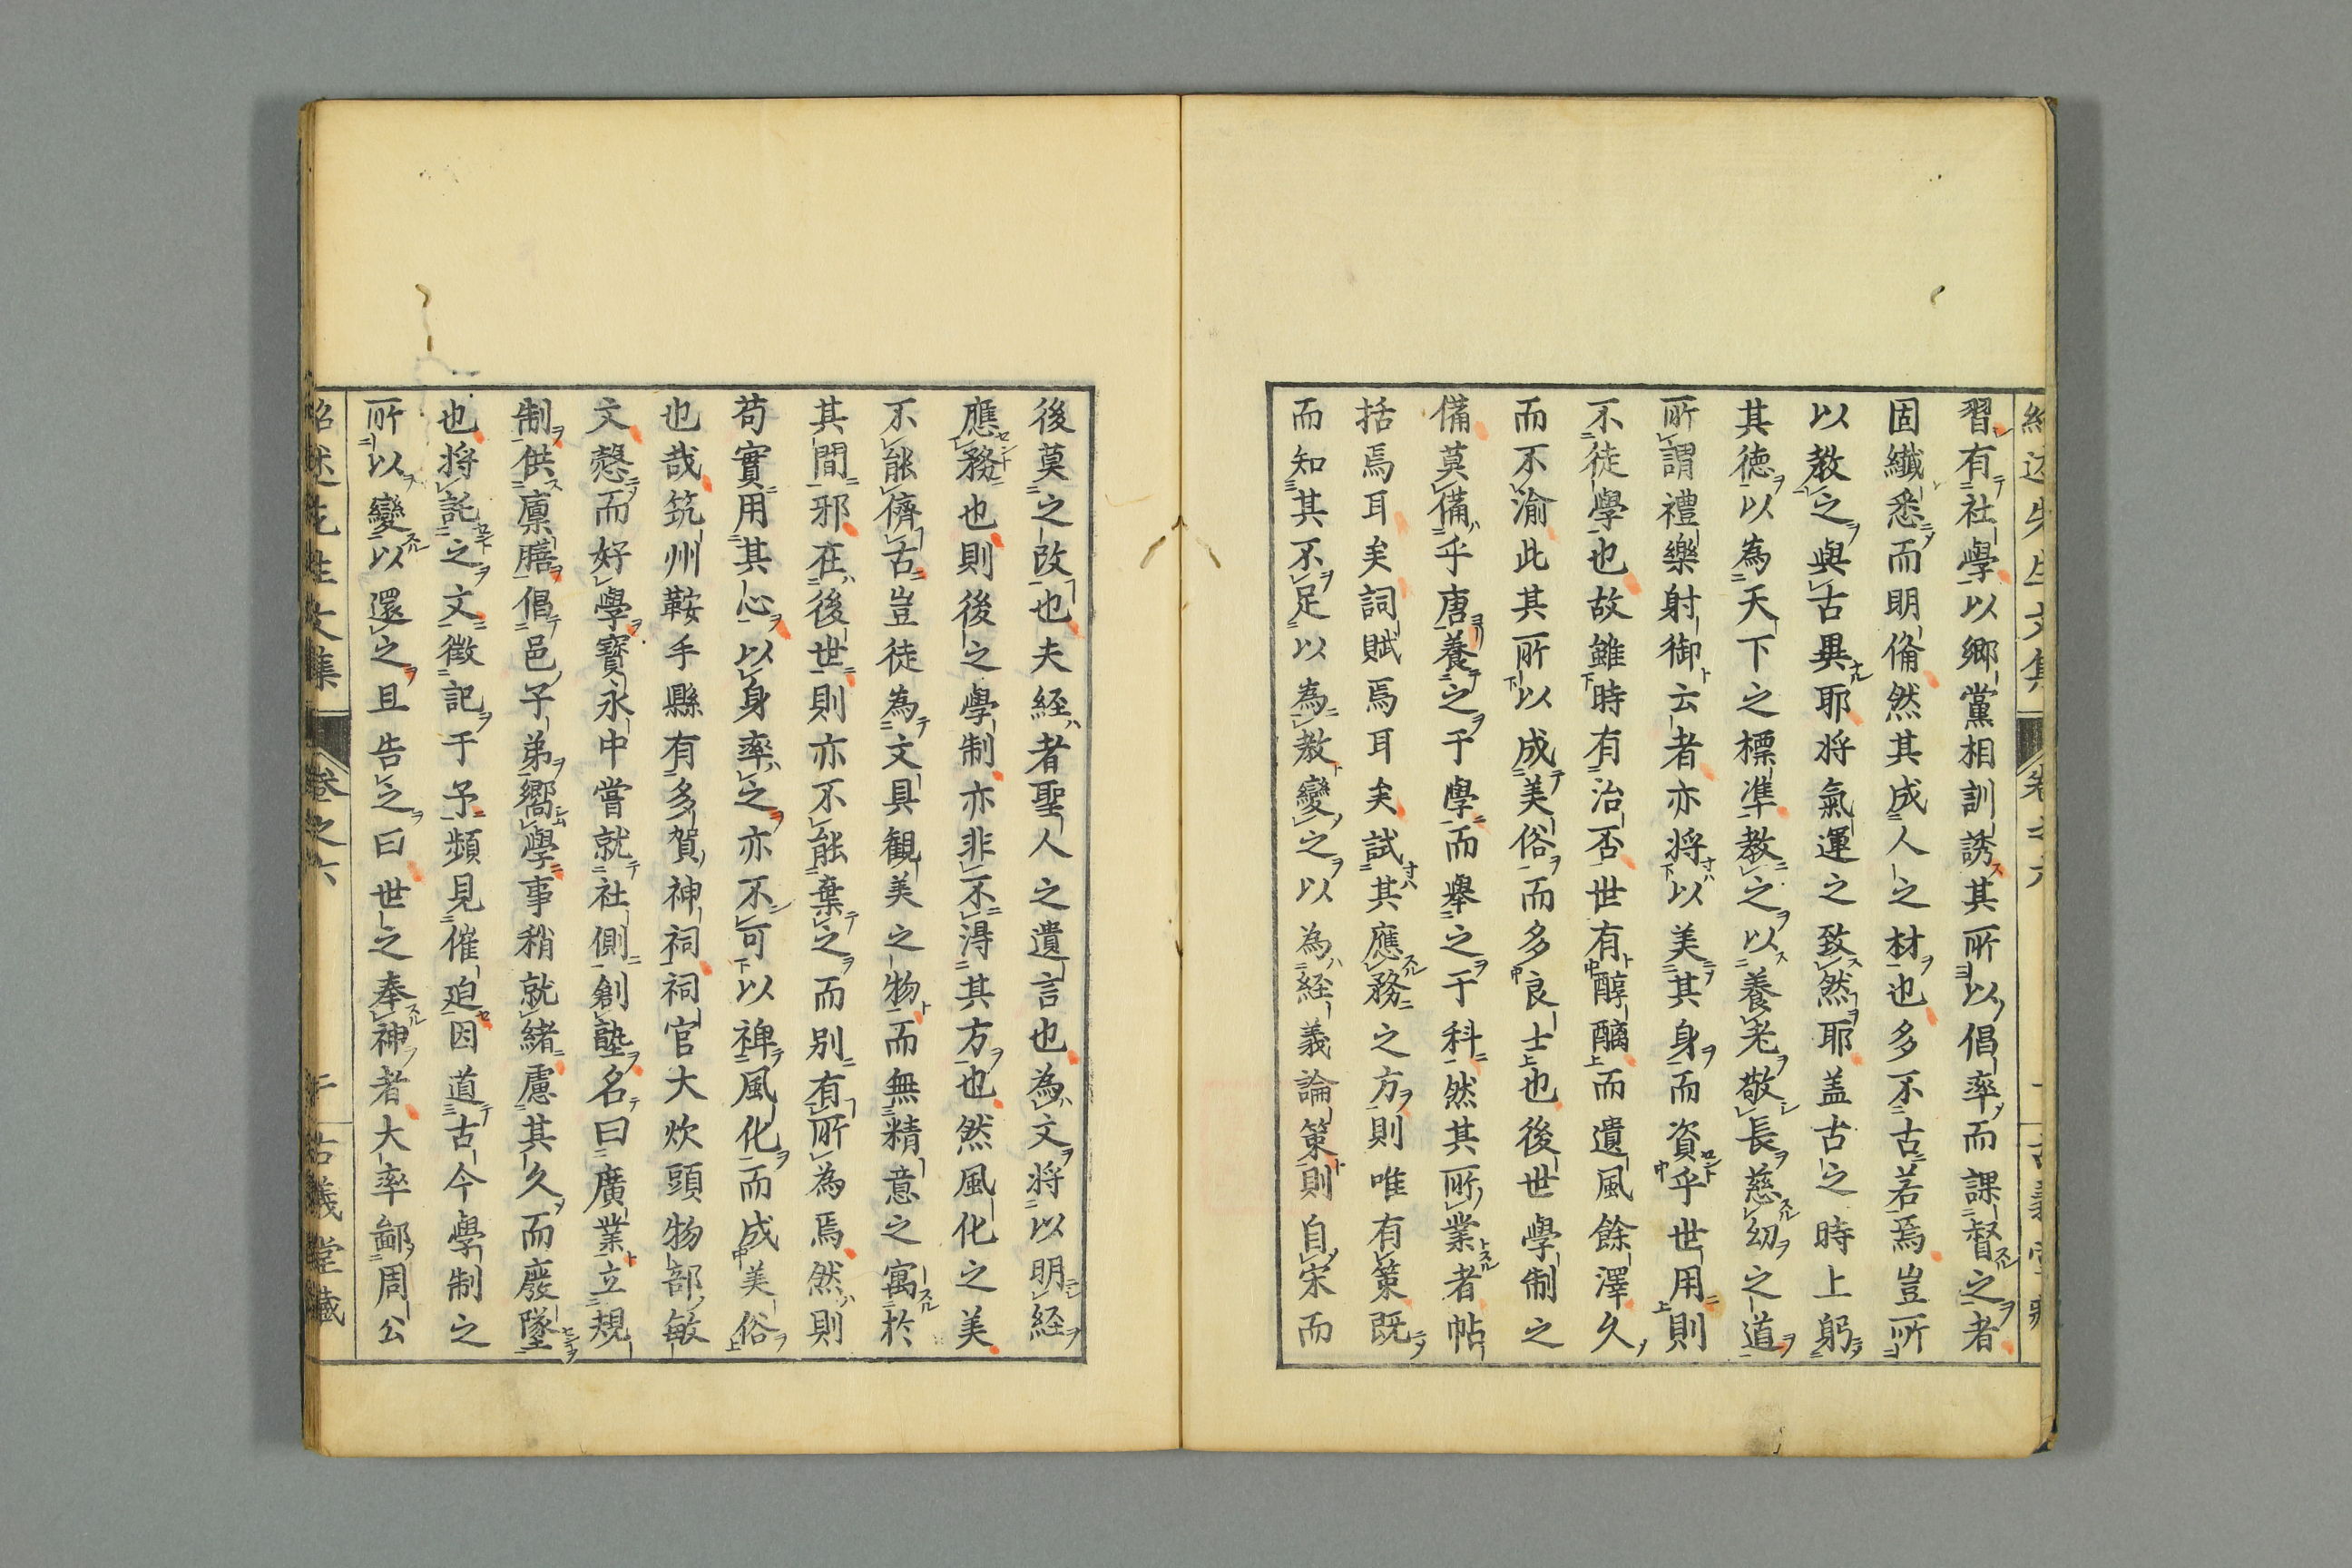 習有社學以鄉黨相訓誘其所以倡率而課督之者
固纖悉而明備然其成人之材也多不古若焉豈所
以教之與古異耶將氣運之致然耶蓋古之時上躬
其德以為天下之標準教之以養老敬長慈幼之道
所謂禮樂射御云者亦將以美其身而資乎世用則
不徒學也故雖時有治否世有醇醨而遺風餘澤久
而不渝此其所以成美俗而多良士也後世學制之
備莫備乎唐養之于學而舉之于科然其所業者帖
括焉耳矣詞賦焉耳矣試其應務之方則唯有策既
而知其不足以為教變之以為経義論策則自宋而
後莫之改也夫経者聖人之遺言也為文將以明経
應務也則後之學制亦非不得其方也然風化之美
不能儕古豈徒為文具観美之物而無精意之寓於
其間邪在後世則亦不能棄之而別有所為焉然則
苟實用其心以身率之亦不可以裨風化而成美俗
也哉筑州鞍手縣有多賀神祠祠官大炊頭物部敏
文愨而好學寶永中嘗就社側創塾名曰廣業立規
制供廩膳倡邑子弟嚮學事稍就緒慮其久而廢墜
也將託之文徵記于予頻見催迫因道古今學制之
所以變以還之且告之曰世之奉神者大率鄙周公
紹述先生文集 卷之六 古義堂藏